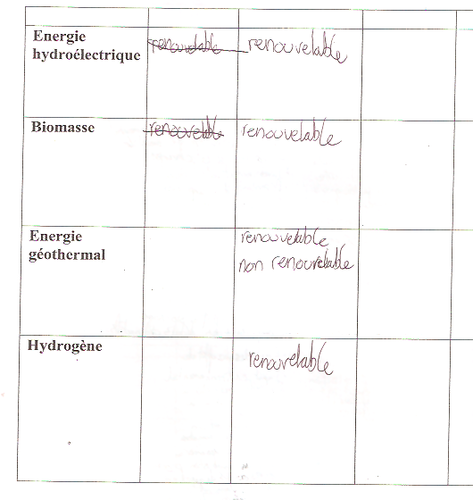 Energie
hydroélectrique
renouvelable
renouvelable
Biomasse
renouvelable
renouvelable
Energie
géothermal
renouvelable
non renouvelable
Hydrogène
renouvelable